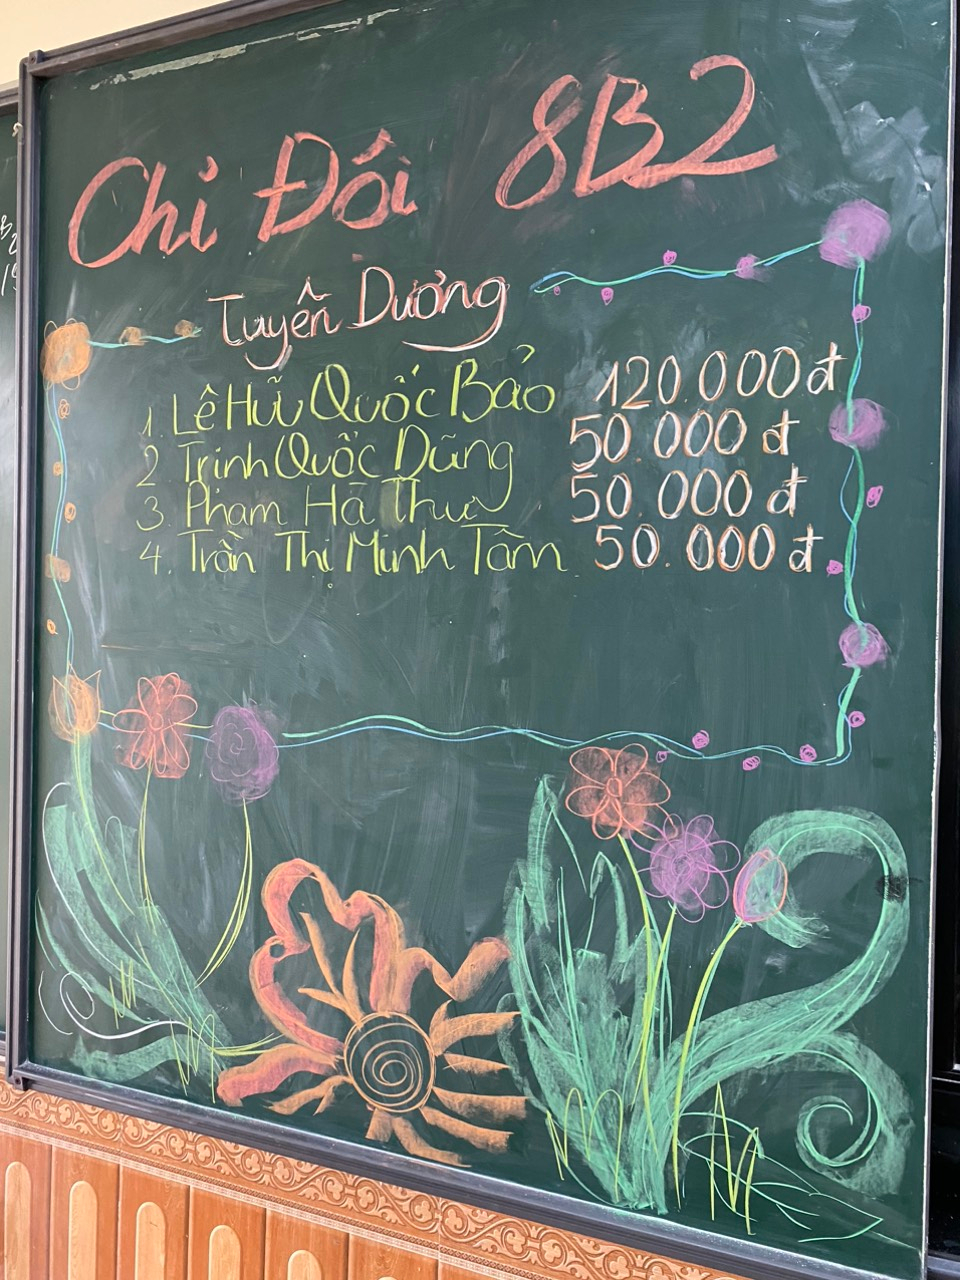 Chi Đội 8B2
Tuyên Dương
1. Lê Hữu Quốc Bảo 120.000đ
2 Trịnh Quốc Dũng 50.000đ
3. Phạm Hà Thư 50.000đ
4. Trần Thị Minh Tâm 50.000đ